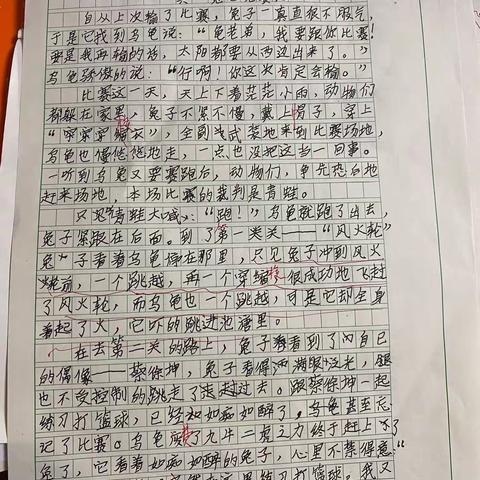 自从上次输了比赛，兔子一真直很不服气，
于是它找到乌龟说：“龟老弟，我要跟你比赛！
要是我再输的话，太阳都要从西边出来了。”
乌龟骄傲的说：“行啊！你这次肯定会输。”
比赛这一天，天上下着茫茫小雨，动物们
都躲在家里，兔子不紧不慢，戴上帽子，穿上
全副武装地来到比赛场地，
乌龟也慢悠悠地走，一点也没把这当一回事。
一听到乌龟又要赛跑后，动物们，争先恐后地
赶来场地，本场比赛的裁判是青蛙。
只见青蛙大喊：“跑！”乌龟就跑了出去，
兔子紧跟在后面。到了第一关关——“风火轮”
兔子看着乌龟停在那里，只见兔子冲到风火
轮前，一个跳越，再一个穿梭，很成功地飞过
了风火轮，而乌龟也一个跳越，可是它却全身
着起了火，它吓的跳进池塘里。
在去第二关的路上，兔子看到了自己
的偶像——蔡徐坤，兔子看得两眼泛光，腿
也不受控制的跳走了过去。跟蔡徐坤一起
练习打篮球，已经如痴如醉了，乌龟甚至忘
记了比赛。乌龟费了九牛二虎之力终于赶上了
兔子，它看着如痴如醉的兔子，心里不禁得意：“
这里练习打篮球。我又